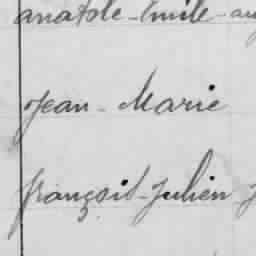 anatole-Emile-au
Jean-Marie
françois-Julien